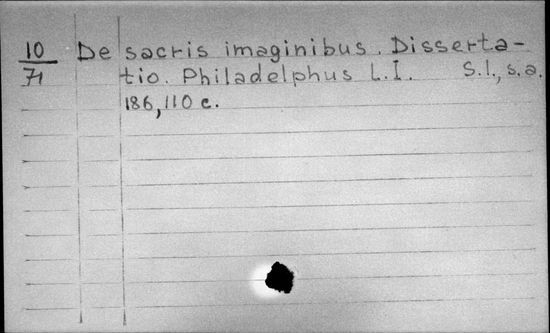 10 De sacris imaginibus. Disserta-
71 tio. Philadelphus L.I. S.l., s.a.
186, 110 c.